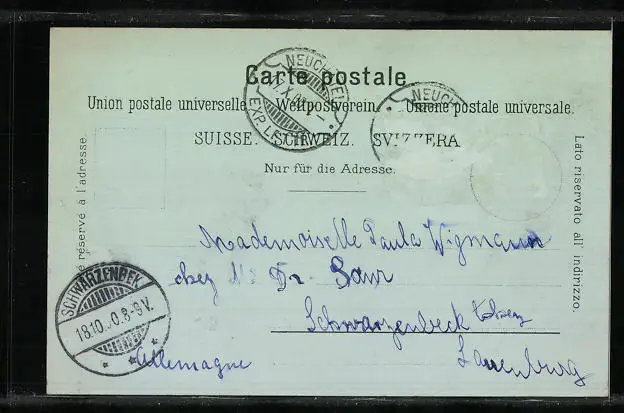 Carte postale
Union postale universelle. Weltpostverein. Unione postale universale.
SUISSE. SCHWEIZ. SVIZZERA
Nur für die Adresse.
é réservé à l'adresse.
Lato riservato all' indirizzo.
NEUCH
EXP. L
NEUCH
SCHWARZENBEK
18.10. 0.8-9V.
Mademoiselle Paula Wigmann
chez Dr.
Schwarzenbeck
Lauenburg
Allemagne